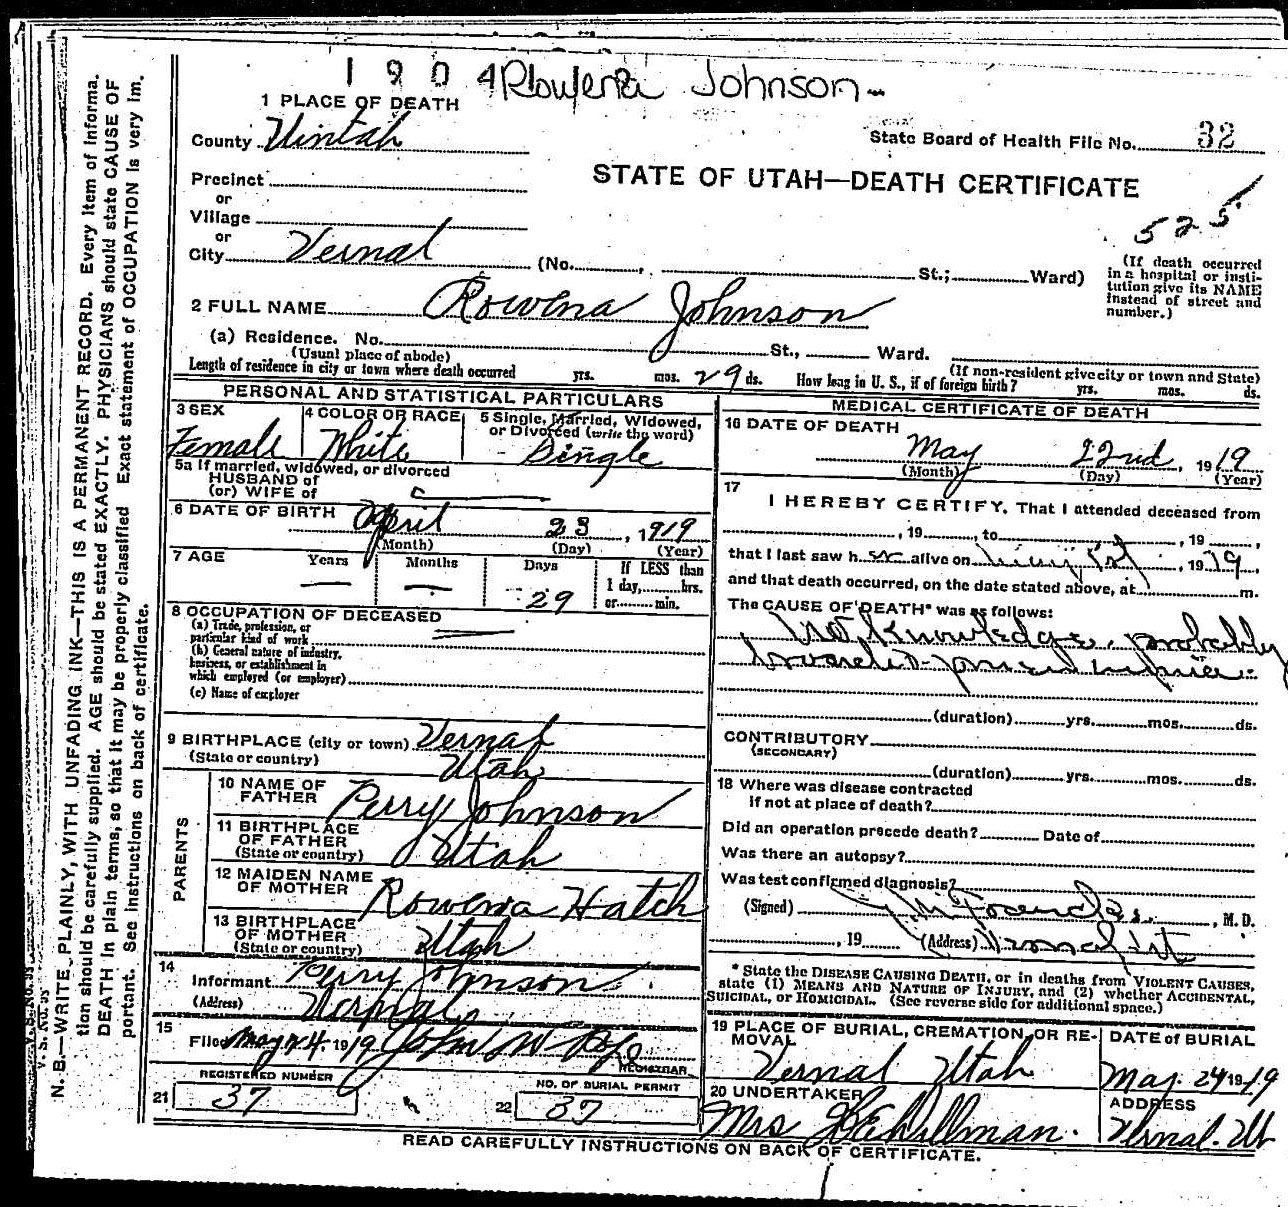 1 9 0 4 Rowena Johnson
1 PLACE OF DEATH
County Uintah
State Board of Health File No. 32
STATE OF UTAH—DEATH CERTIFICATE
Precinct
or
Village
or
525
City Vernal (No. , St.; Ward)
(If death occurred in a hospital or insti-
tution give its NAME instead of street and number.)
2 FULL NAME Rowena Johnson
(a) Residence. No. St., Ward.
(Usual place of abode) (If non-resident give city or town and State)
Length of residence in city or town where death occurred yrs. mos. 29 ds. How long in U. S., if of foreign birth? yrs. mos. ds.
PERSONAL AND STATISTICAL PARTICULARS
3 SEX Female
4 COLOR OR RACE White
5 Single, Married, Widowed, or Divorced (write the word) Single
5a If married, widowed, or divorced
HUSBAND of
(or) WIFE of
6 DATE OF BIRTH April 23, 1919
(Month) (Day) (Year)
7 AGE Years Months Days If LESS than
1 day, hrs.
29 or min.
8 OCCUPATION OF DECEASED
(a) Trade, profession, or
particular kind of work
(b) General nature of industry,
business, or establishment in
which employed (or employer)
(c) Name of employer
9 BIRTHPLACE (city or town) Vernal
(State or country) Utah
PARENTS
10 NAME OF FATHER Perry Johnson
11 BIRTHPLACE OF FATHER
(State or country) Utah
12 MAIDEN NAME OF MOTHER Rowena Hatch
13 BIRTHPLACE OF MOTHER
(State or country) Utah
14
Informant Perry Johnson
(Address) Vernal
15
Filed May 24, 1919 John W
REGISTRAR
REGISTERED NUMBER
21 37
NO. OF BURIAL PERMIT
22 37
MEDICAL CERTIFICATE OF DEATH
16 DATE OF DEATH
May 22nd, 1919
(Month) (Day) (Year)
17
I HEREBY CERTIFY, That I attended deceased from
, 19 , to , 19 ,
that I last saw h alive on , 1919,
and that death occurred, on the date stated above, at m.
The CAUSE OF DEATH* was as follows:
No knowledge, probably
(duration) yrs. mos. ds.
CONTRIBUTORY
(SECONDARY)
(duration) yrs. mos. ds.
18 Where was disease contracted
if not at place of death?
Did an operation precede death? Date of
Was there an autopsy?
Was test confirmed diagnosis?
(Signed) , M. D.
, 19 (Address)
* State the DISEASE CAUSING DEATH, or in deaths from VIOLENT CAUSES,
state (1) MEANS AND NATURE OF INJURY, and (2) whether ACCIDENTAL,
SUICIDAL, or HOMICIDAL. (See reverse side for additional space.)
19 PLACE OF BURIAL, CREMATION, OR RE-
MOVAL
Vernal Utah
DATE of BURIAL
May 24 1919
20 UNDERTAKER
Mrs
ADDRESS
Vernal. Ut
READ CAREFULLY INSTRUCTIONS ON BACK OF CERTIFICATE.
N. B.—WRITE PLAINLY, WITH UNFADING INK—THIS IS A PERMANENT RECORD. Every item of informa-
tion should be carefully supplied. AGE should be stated EXACTLY. PHYSICIANS should state CAUSE OF
DEATH in plain terms, so that it may be properly classified. Exact statement of OCCUPATION is very im-
portant. See instructions on back of certificate.